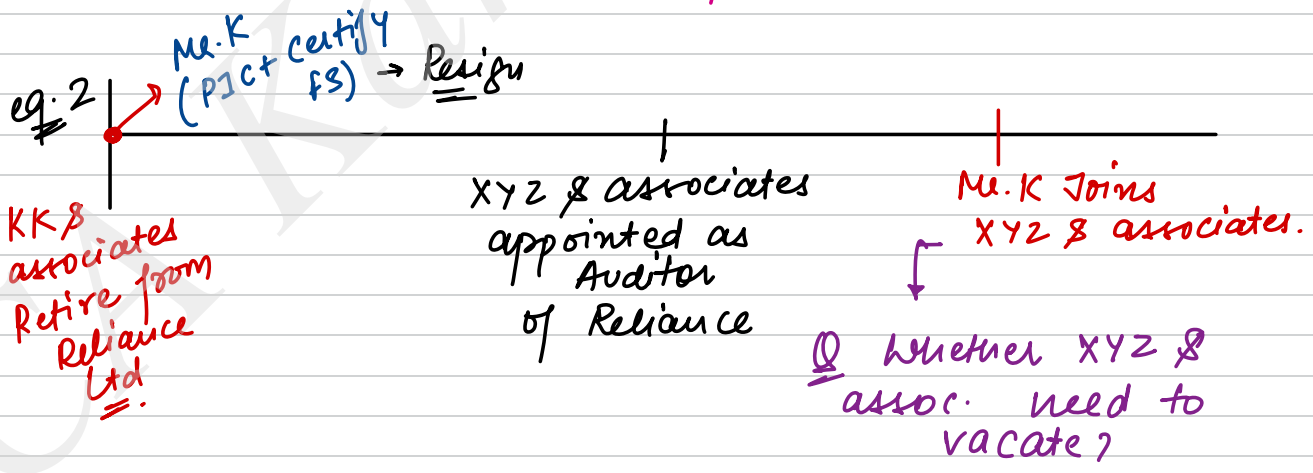 eg. 2
Mr. K
(PIC + Certify
FS) → Resign
KK &
associates
Retire from
Reliance
Ltd.
XYZ & associates
appointed as
Auditor
of Reliance
Mr. K Joins
XYZ & associates.
Q Whether XYZ &
assoc. need to
vacate?